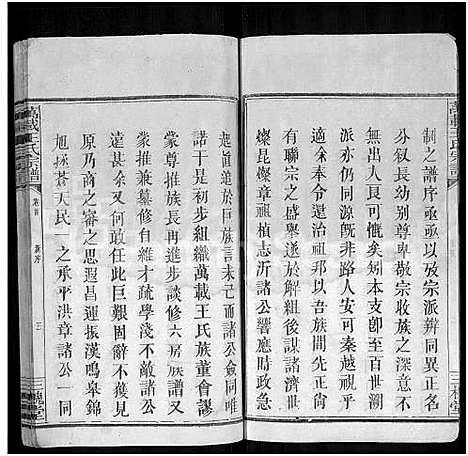 萬載王氏宗譜
三槐堂
制之譜序亟亟以攷宗派辨同異正名
分恊長幼别尊卑敬宗收族之深意不
可作也能不慨然矧本支卽至百世溯
尋初祖旣非路人安可秦越視乎
令奉委還治祖邦以吾族間先世本
有聯宗之盛舉遂於解組後諸濟世
燦昆燦章祖楨志沂諸公響應時以
起眞道於巨族言未已而諸公僉同唯
諾于是初步組織萬載王氏族董會謬
蒙推族長再進步談修六房族譜又
蒙推兼纂修自維才疏學淺諸公
甚夥奈何又以王艱巨固辭不獲見
原乃商之審之思遐昌運振漢鳴皋錦
旭拯蒼天民一之承平洪章諸公一同
萬載王氏宗譜
卷首
新序
三槐堂